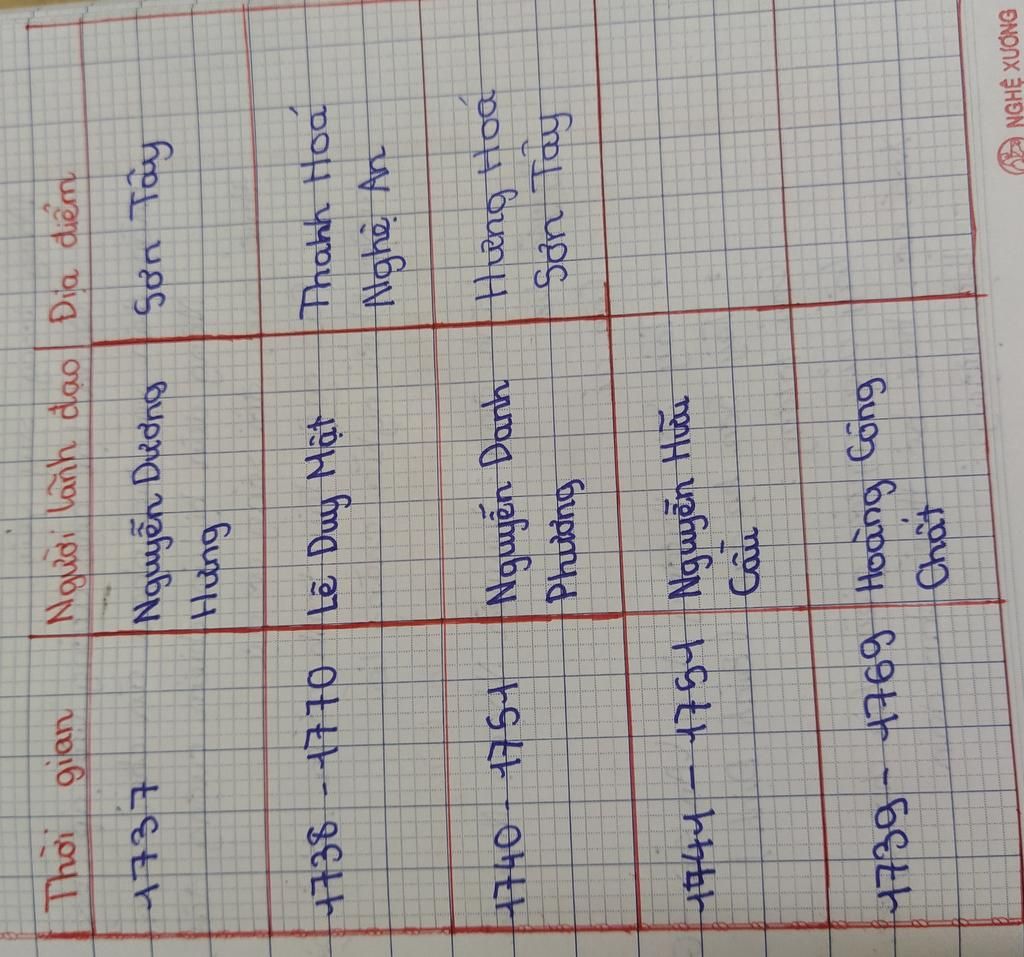 Thời gian Người lãnh đạo Địa điểm
1737 Nguyễn Dương Sơn Tây
Hưng
1738 - 1770 Lê Duy Mật Thanh Hoá
Nghệ An
1740 - 1751 Nguyễn Danh Hưng Hoá
Phương Sơn Tây
1741 - 1751 Nguyễn Hữu
Cầu
1739 - 1769 Hoàng Công
Chất
NGHỆ XƯƠNG